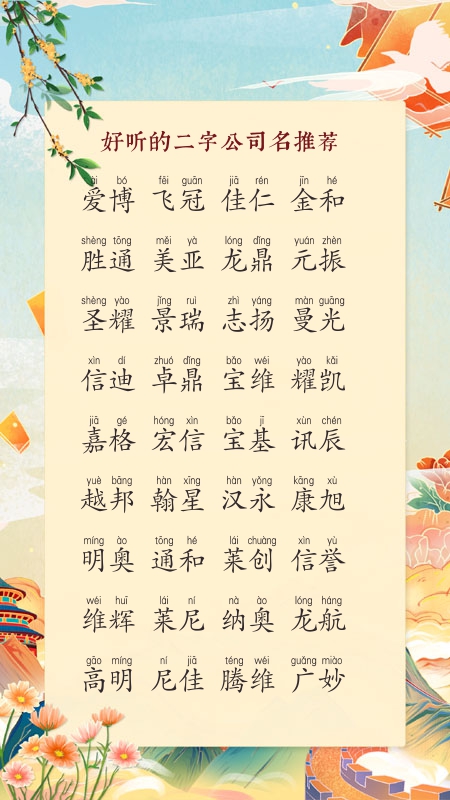 好听的二字公司名推荐
ài bó fēi guān jiā rén jīn hé
爱博 飞冠 佳仁 金和
shèng tōng měi yà lóng dǐng yuán zhèn
胜通 美亚 龙鼎 元振
shèng yào jǐng ruì zhì yáng màn guāng
圣耀 景瑞 志扬 曼光
xìn dí zhuó dǐng bǎo wéi yào kǎi
信迪 卓鼎 宝维 耀凯
jiā gé hóng xìn bǎo jī xùn chén
嘉格 宏信 宝基 讯辰
yuè bāng hàn xīng hàn yǒng kāng xù
越邦 翰星 汉永 康旭
míng ào tōng hé lái chuàng xìn yù
明奥 通和 莱创 信誉
wéi huī lái ní nà ào lóng háng
维辉 莱尼 纳奥 龙航
gāo míng ní jiā téng wéi guǎng miào
高明 尼佳 腾维 广妙